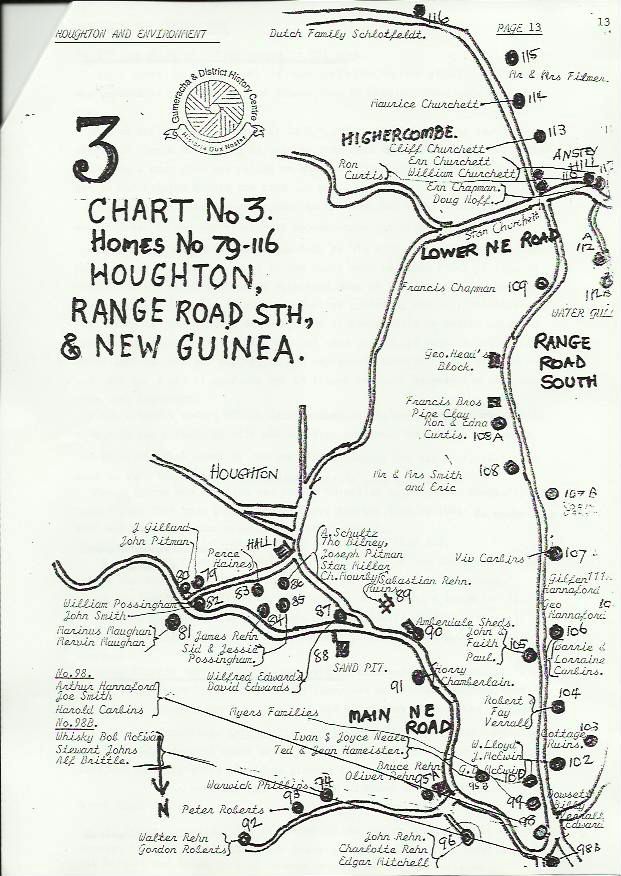 HOUGHTON AND ENVIRONMENT
PAGE 13
13
Dutch Family Schlotfeldt.
116
115
Mr & Mrs Filmer.
Maurice Churchett
114
Gumeracha & District History Centre
3
HIGHERCOMBE.
113
Cliff Churchett
Ern Churchett
William Churchett
Ron
Curtis
ANSTEY
HILL
110
Ern Chapman.
Doug Hoff.
Stan Churchett
CHART No 3.
HOMES No 79-116
HOUGHTON,
RANGE ROAD STH,
& NEW GUINEA.
LOWER NE ROAD
A
112
112B
WATER
Francis Chapman
109
RANGE
ROAD
SOUTH
Geo. Head's
Block.
Francis Bros
Pipe Clay
Ron & Edna
Curtis. 108A
Mr & Mrs Smith
and Eric
108
107B
HOUGHTON
Viv Carbins
107
J Gillard
John Pitman
HALL
Perce
Haines
A.Schultz
Tho Dilney,
Joseph Pitman
Stan Millar
Sebastian Rehn.
Ruin
89
80
79
83
86
85
84
82
William Possingham
John Smith
81
Marinus Maughan
Mervin Maughan
James Rehn
Sid & Jessie
Possingham.
87
Wilfred Edwards
David Edwards
88
SAND PIT.
Amberdale Sheds.
90
John &
Faith
Paul.
105
Hannaford
Geo
Hannaford
106
Garrie &
Lorraine
Carbins.
91
Horry
Chamberlain.
104
Robert &
Fay
Verrall
103
Cottage
Ruins.
No.98.
Arthur Hannaford
Joe Smith
Harold Carbins
No.98B.
Whisky Bob McEwan
Stewart Johns
Alf Brittle.
N
Myers Families
MAIN NE
ROAD
Ivan & Joyce Neale
Ted & Jean Hameister.
W.Lloyd
J.McEwin
102
Bruce Rehn
Oliver Rehn
95A
95B
101
99
98
Warwick Phillips
94
93
Peter Roberts
92
Walter Rehn
Gordon Roberts
John Rehn.
Charlotte Rehn
Edgar Mitchell
96
98B